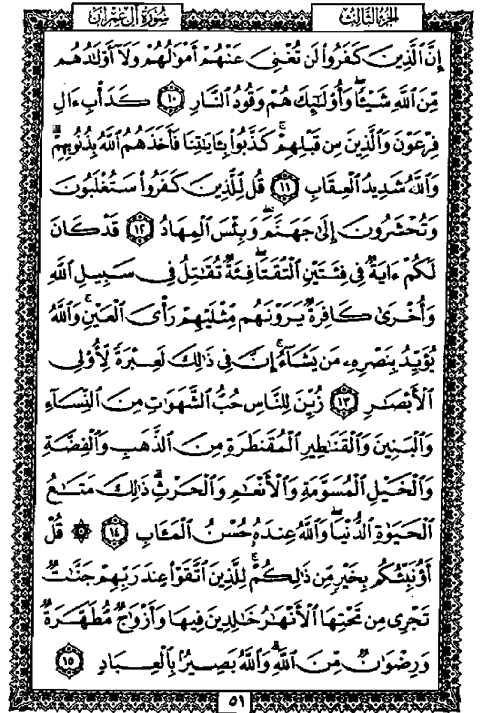 الجزء الثالث
سورة آل عمران
إِنَّ ٱلَّذِينَ كَفَرُواْ لَن تُغْنِىَ عَنْهُمْ أَمْوَٰلُهُمْ وَلَآ أَوْلَٰدُهُم
مِّنَ ٱللَّهِ شَيْـًٔا ۖ وَأُوْلَٰٓئِكَ هُمْ وَقُودُ ٱلنَّارِ ١٠ كَدَأْبِ ءَالِ
فِرْعَوْنَ وَٱلَّذِينَ مِن قَبْلِهِمْ ۚ كَذَّبُواْ بِـَٔايَٰتِنَا فَأَخَذَهُمُ ٱللَّهُ بِذُنُوبِهِمْ ۗ
وَٱللَّهُ شَدِيدُ ٱلْعِقَابِ ١١ قُل لِّلَّذِينَ كَفَرُواْ سَتُغْلَبُونَ
وَتُحْشَرُونَ إِلَىٰ جَهَنَّمَ ۚ وَبِئْسَ ٱلْمِهَادُ ١٢ قَدْ كَانَ
لَكُمْ ءَايَةٌ فِى فِئَتَيْنِ ٱلْتَقَتَا ۖ فِئَةٌ تُقَٰتِلُ فِى سَبِيلِ ٱللَّهِ
وَأُخْرَىٰ كَافِرَةٌ يَرَوْنَهُم مِّثْلَيْهِمْ رَأْىَ ٱلْعَيْنِ ۚ وَٱللَّهُ
يُؤَيِّدُ بِنَصْرِهِۦ مَن يَشَآءُ ۗ إِنَّ فِى ذَٰلِكَ لَعِبْرَةً لِّأُوْلِى
ٱلْأَبْصَٰرِ ١٣ زُيِّنَ لِلنَّاسِ حُبُّ ٱلشَّهَوَٰتِ مِنَ ٱلنِّسَآءِ
وَٱلْبَنِينَ وَٱلْقَنَٰطِيرِ ٱلْمُقَنطَرَةِ مِنَ ٱلذَّهَبِ وَٱلْفِضَّةِ
وَٱلْخَيْلِ ٱلْمُسَوَّمَةِ وَٱلْأَنْعَٰمِ وَٱلْحَرْثِ ۗ ذَٰلِكَ مَتَٰعُ
ٱلْحَيَوٰةِ ٱلدُّنْيَا ۖ وَٱللَّهُ عِندَهُۥ حُسْنُ ٱلْمَـَٔابِ ١٤ ۞ قُلْ
أَؤُنَبِّئُكُم بِخَيْرٍ مِّن ذَٰلِكُمْ ۚ لِلَّذِينَ ٱتَّقَوْاْ عِندَ رَبِّهِمْ جَنَّٰتٌ
تَجْرِى مِن تَحْتِهَا ٱلْأَنْهَٰرُ خَٰلِدِينَ فِيهَا وَأَزْوَٰجٌ مُّطَهَّرَةٌ
وَرِضْوَٰنٌ مِّنَ ٱللَّهِ ۗ وَٱللَّهُ بَصِيرٌۢ بِٱلْعِبَادِ ١٥
٥١